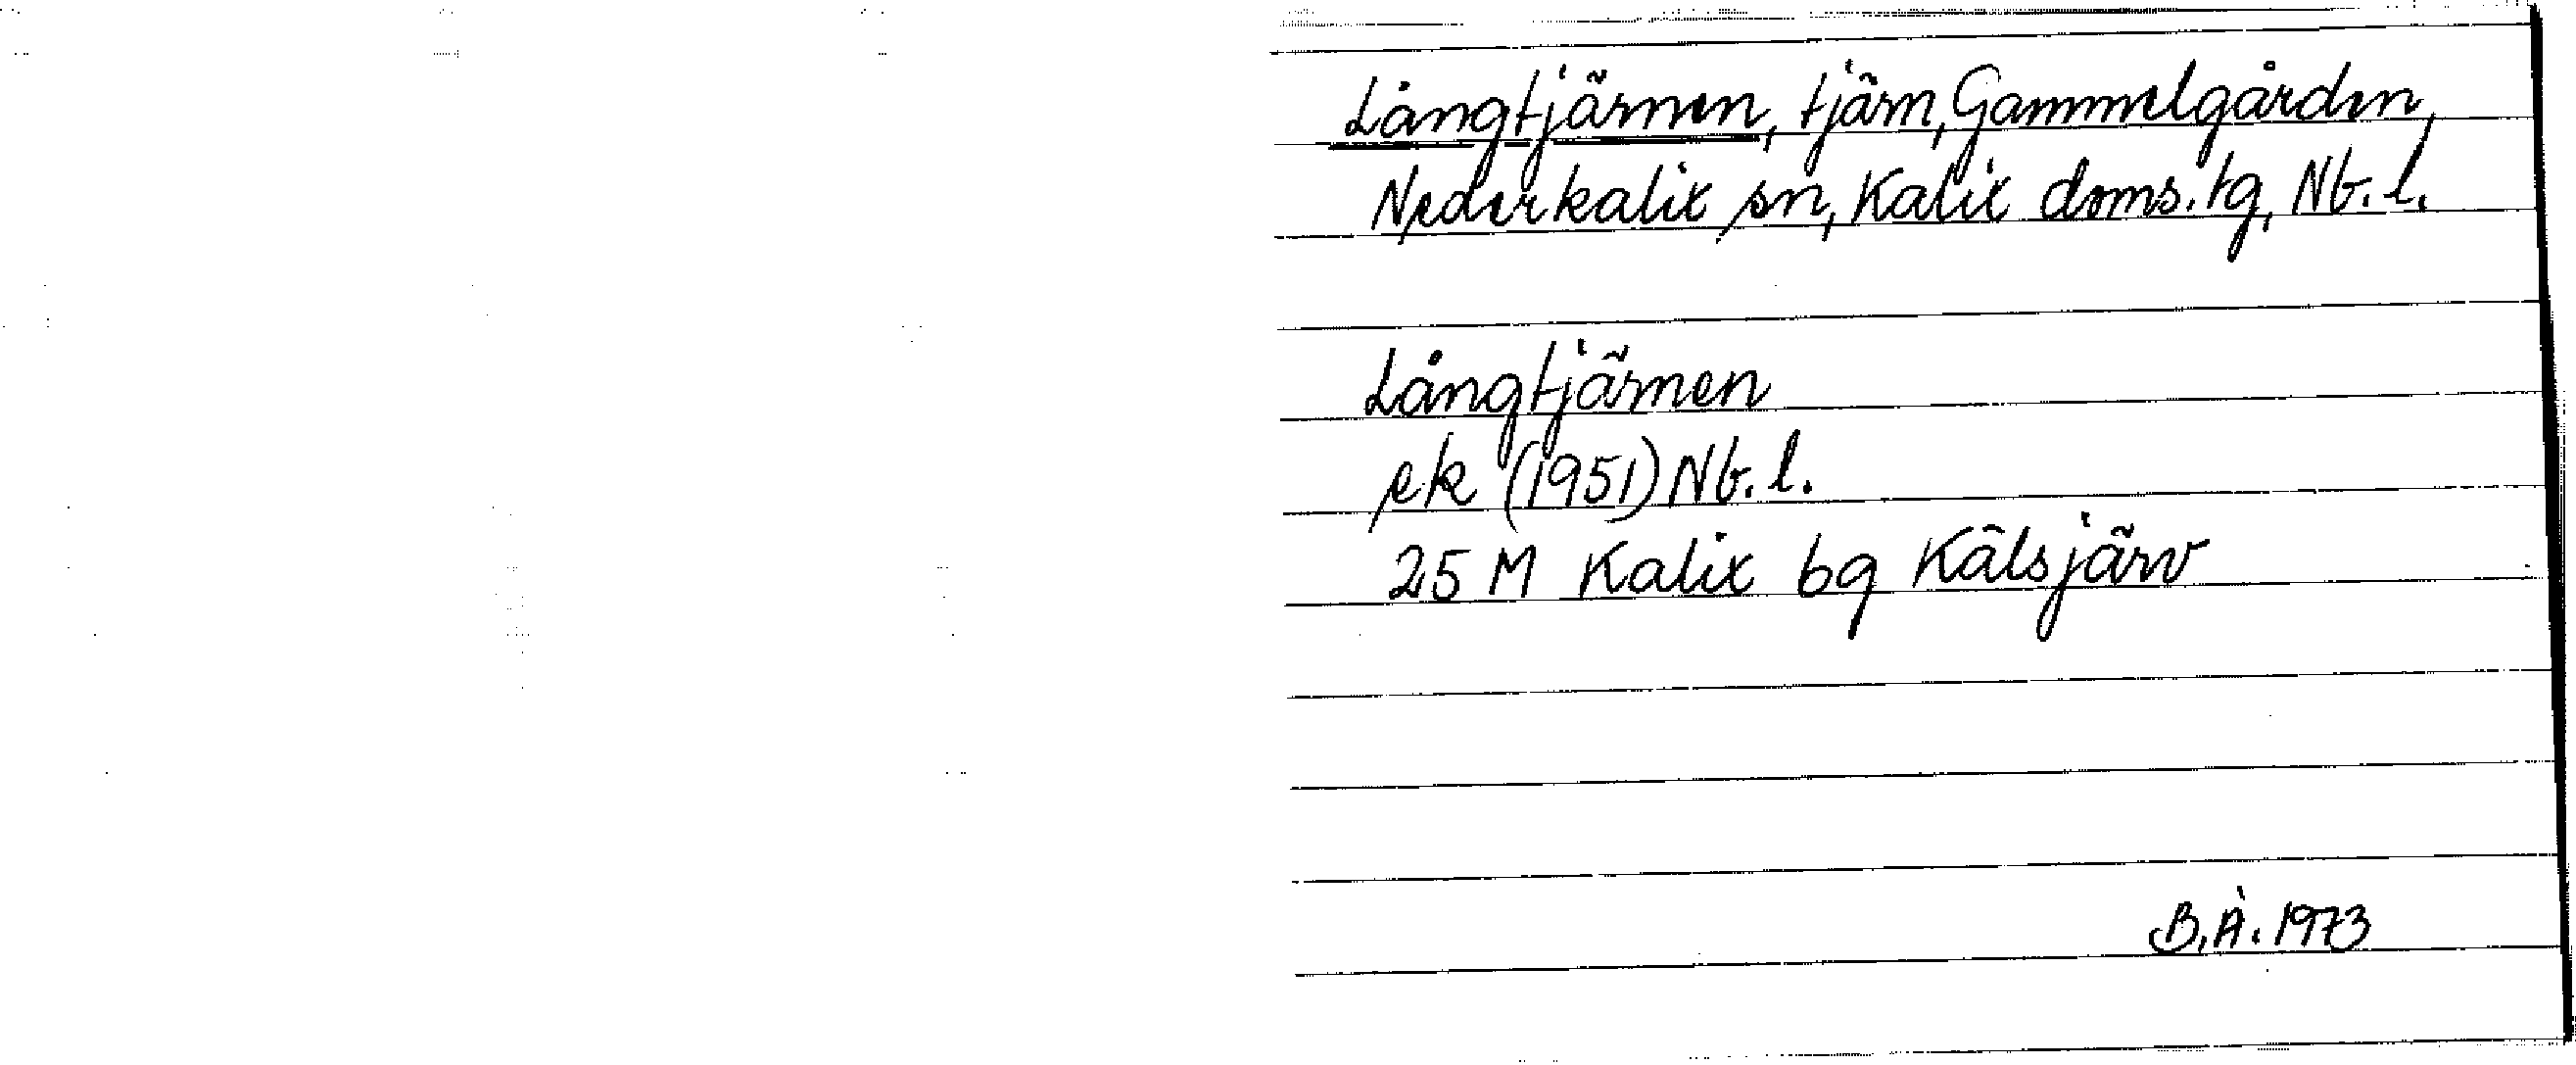 Långtjärnen, tjärn, Gammelgården,
Nederkalix sn, Kalix doms.tg, Nb.l.
Långtjärnen
ek (1951) Nb.l.
25 M Kalix bq Kälsjärv
B.Å. 1973